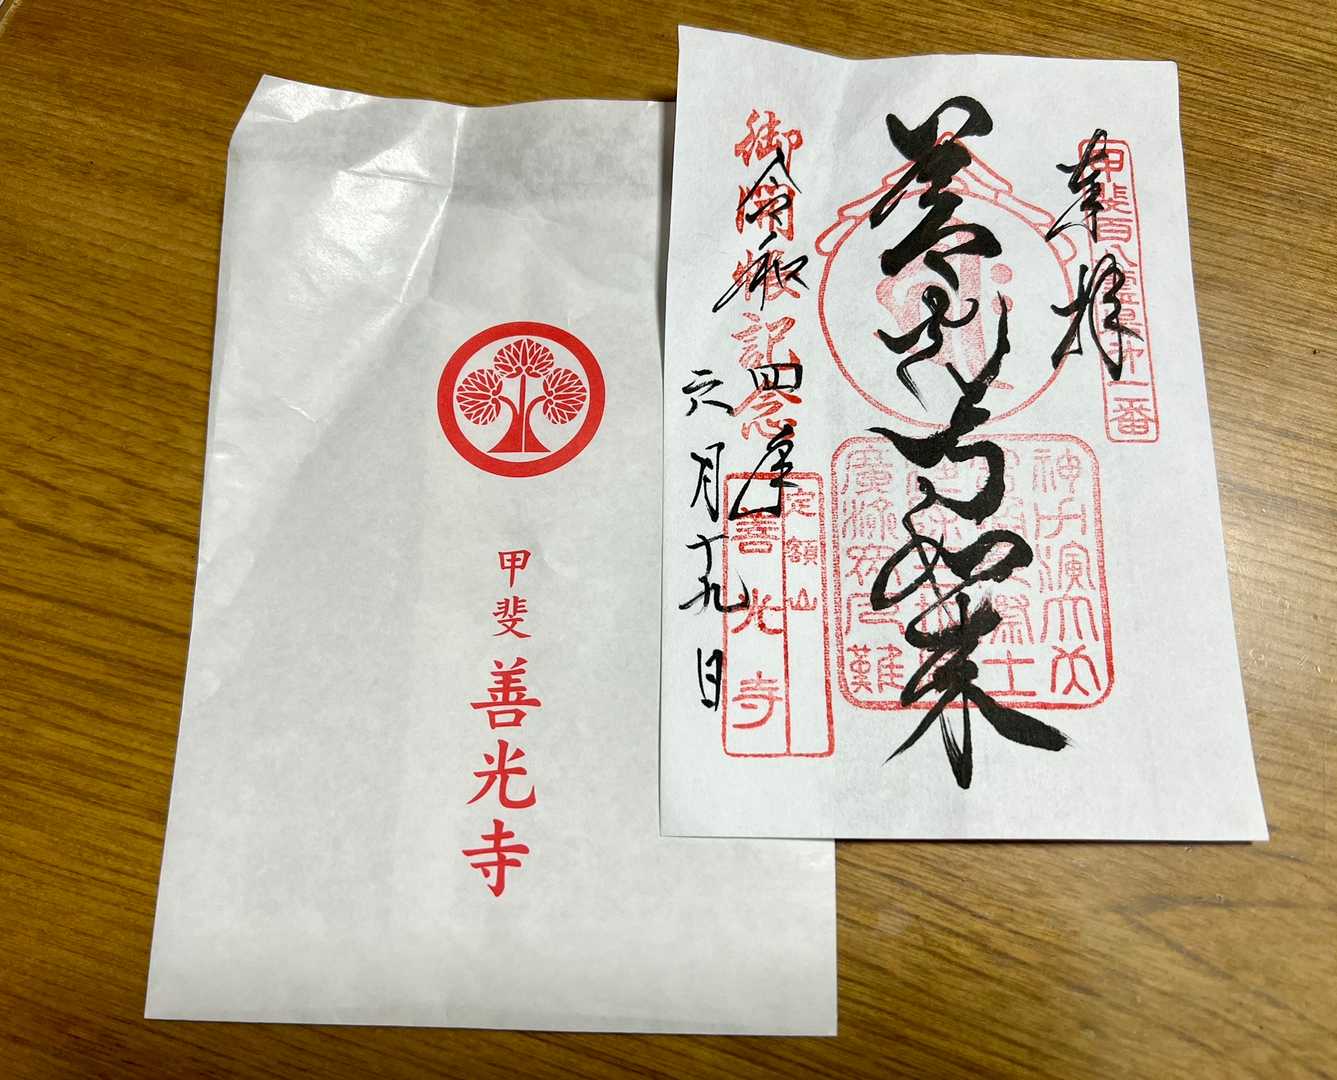 甲斐
善光寺
甲斐百八霊場 一番
奉拝
善光寺如来
御開帳記念
令和四年
六月十九日
定額山
善光寺